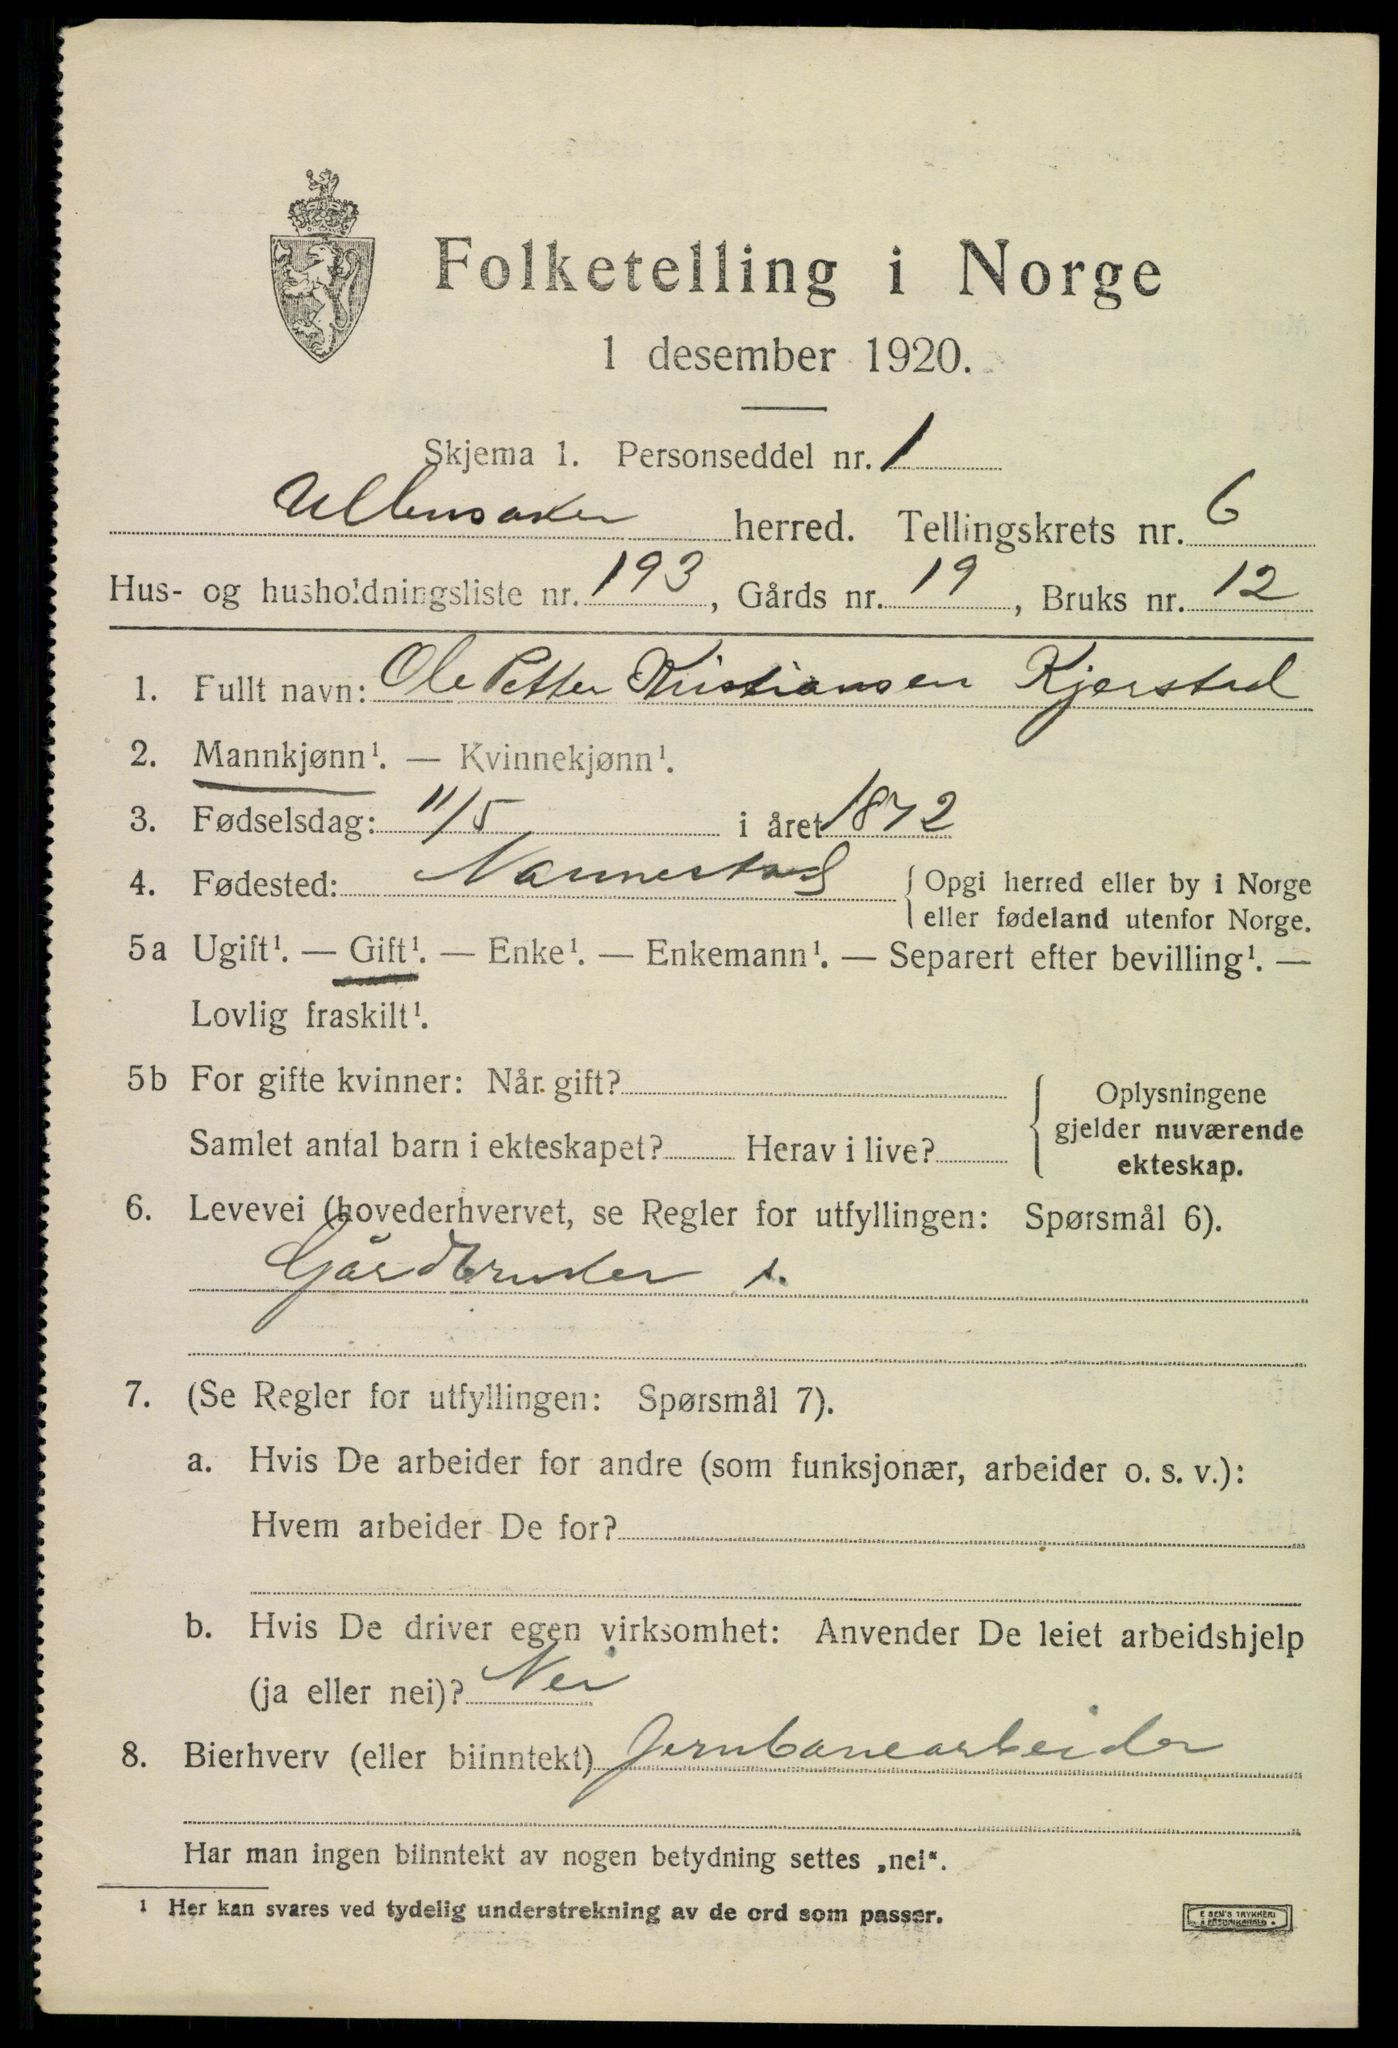 Folketelling i Norge
1 desember 1920.
Skjema 1. Personseddel nr. 1
Ullensaker herred. Tellingskrets nr. 6
Hus- og husholdningsliste nr. 193, Gårds nr. 19, Bruks nr. 12
1. Fullt navn: Ole Petter Kristiansen Kjerstad
2. Mannkjønn¹. — Kvinnekjønn¹.
3. Fødselsdag: 11/5 i året 1872
4. Fødested: Nannestad { Opgi herred eller by i Norge
eller fødeland utenfor Norge.
5a Ugift¹. — Gift¹. — Enke¹. — Enkemann¹. — Separert efter bevilling¹. —
Lovlig fraskilt¹.
5b For gifte kvinner: Når gift? { Oplysningene
gjelder nuværende
Samlet antal barn i ekteskapet? Herav i live?
ekteskap.
6. Levevei (hovederhvervet, se Regler for utfyllingen: Spørsmål 6).
Gårdbruker s.
7. (Se Regler for utfyllingen: Spørsmål 7).
a. Hvis De arbeider for andre (som funksjonær, arbeider o. s. v.):
Hvem arbeider De for?
b. Hvis De driver egen virksomhet: Anvender De leiet arbeidshjelp
(ja eller nei)? Nei
8. Bierhverv (eller biinntekt) Jernbanearbeider
Har man ingen biinntekt av nogen betydning settes „nei“.
¹ Her kan svares ved tydelig understrekning av de ord som passer.